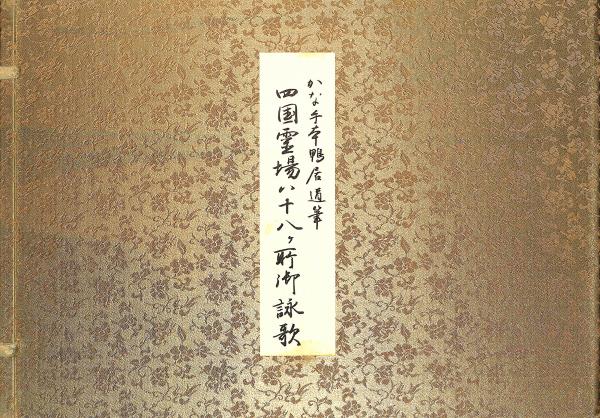 かな手本鴨居道筆
四国霊場八十八ヶ所御詠歌